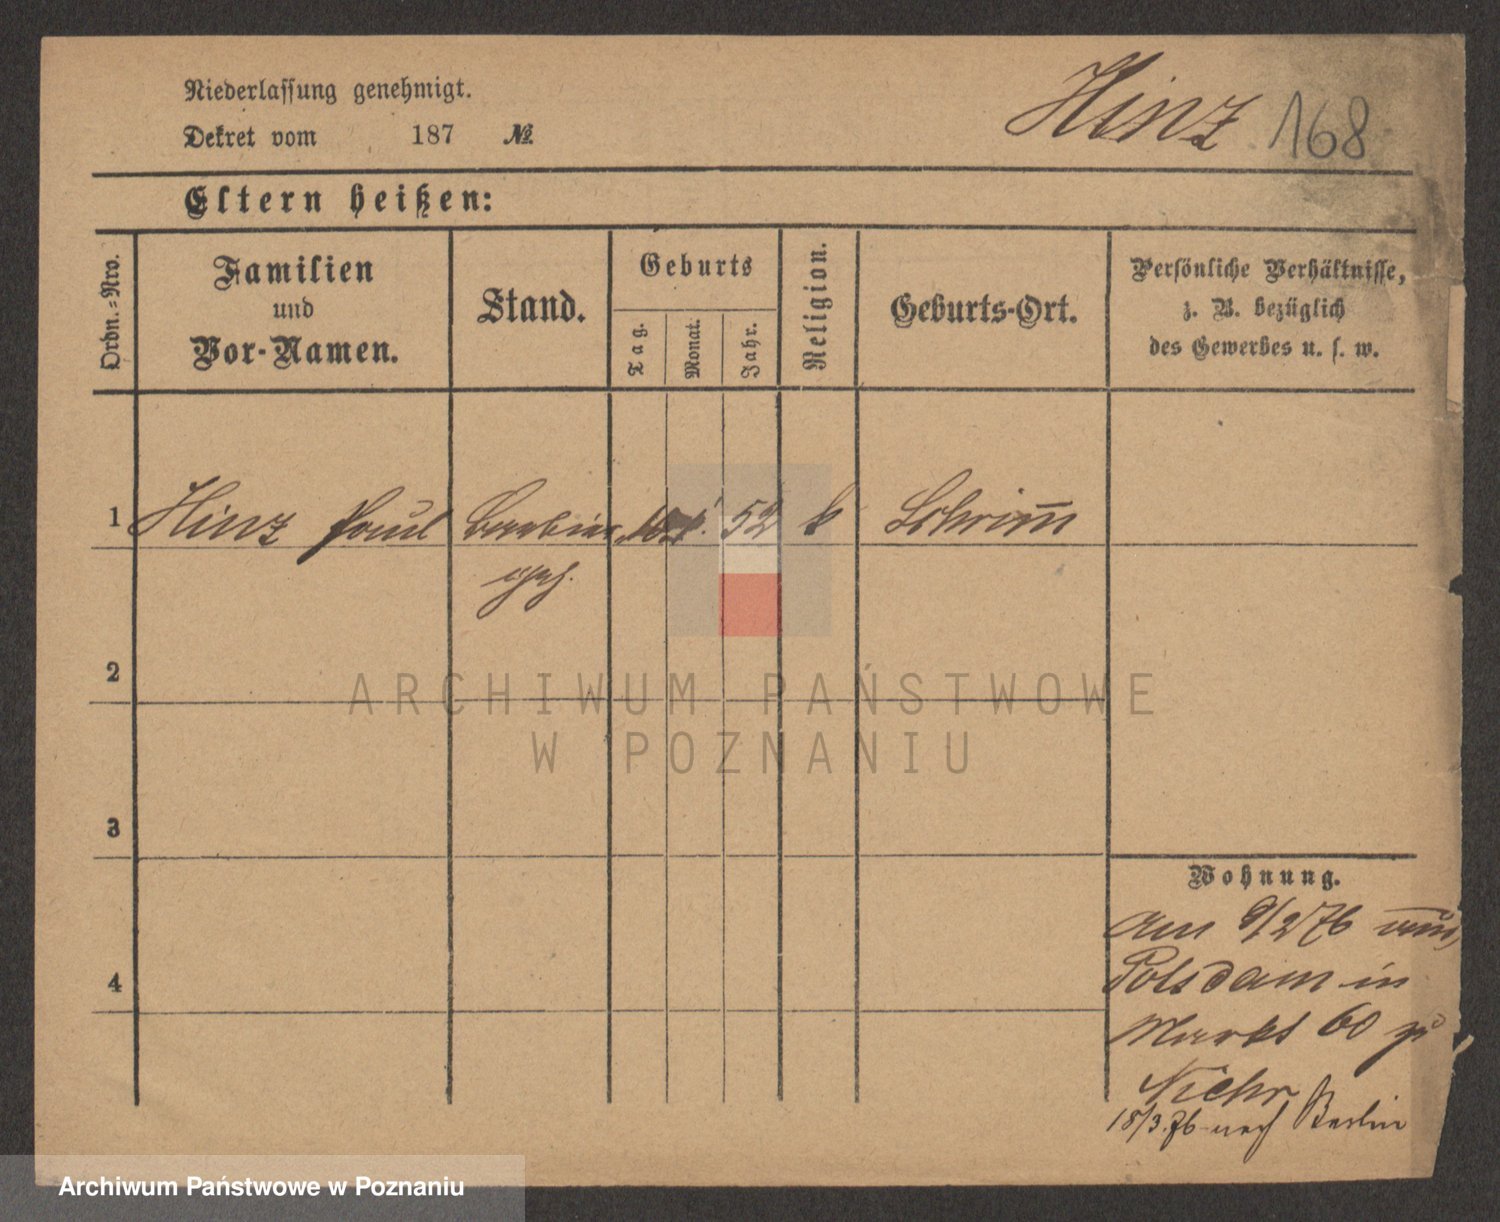 Niederlassung genehmigt.
Dekret vom 187 №
Hinz 168
Eltern heißen:
Ordn.-Nro.
Familien
und
Vor-Namen.
Stand.
Geburts
Tag.
Monat.
Jahr.
Religion.
Geburts-Ort.
Persönliche Verhältnisse,
z. B. bezüglich
des Gewerbes u. s. w.
1 Hinz Paul Barbier 52 k Schrimm
2
3
4
ARCHIWUM PAŃSTWOWE
W POZNANIU
Wohnung.
am 9/2 76 von
Potsdam in
Markt 60 zu
Niehr
18/3.76 nach Berlin
Archiwum Państwowe w Poznaniu